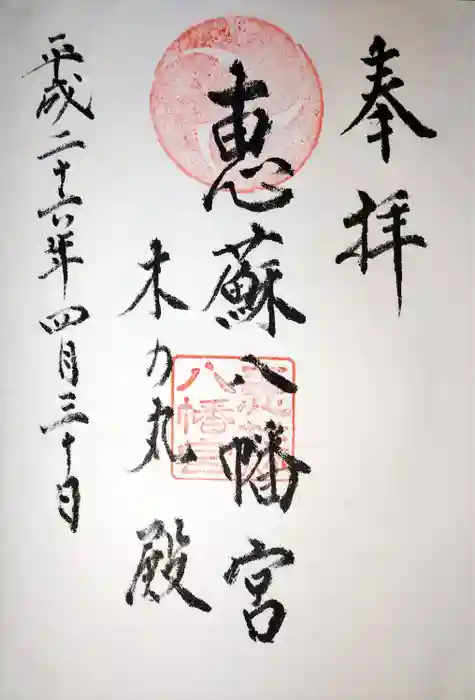 奉拝
恵蘇八幡宮
木の丸殿
平成二十六年四月三十日
八幡宮